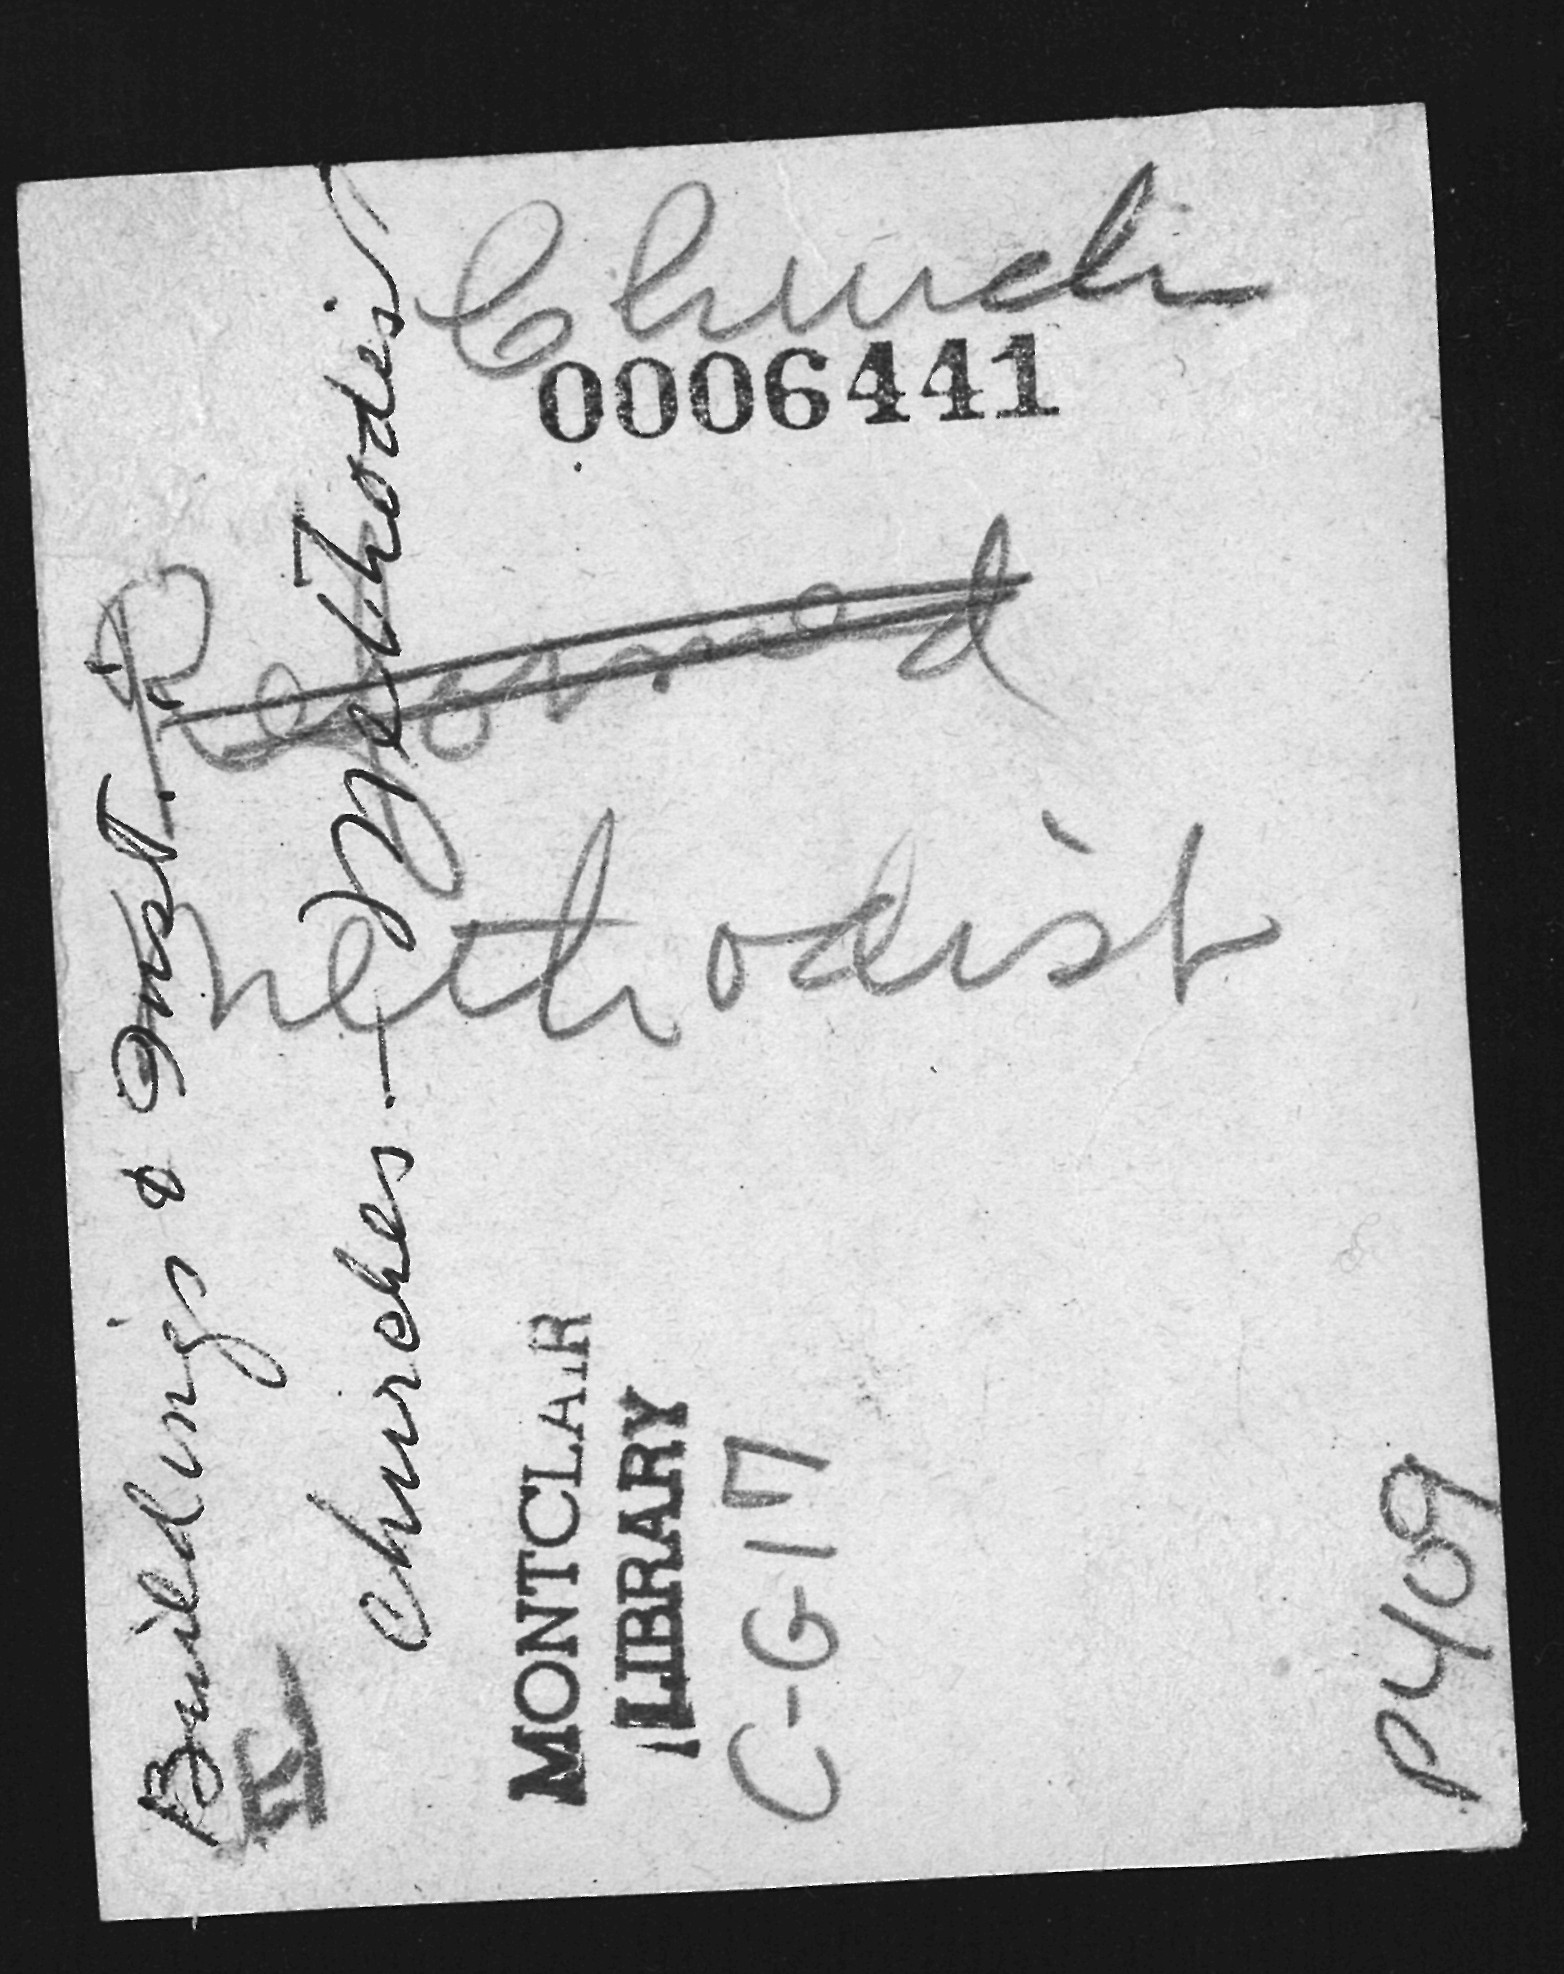 Church
0006441
Reformed
Methodist
Buildings & Inst.
Churches - Methodist
MONTCLAIR
LIBRARY
C-G-17
P409